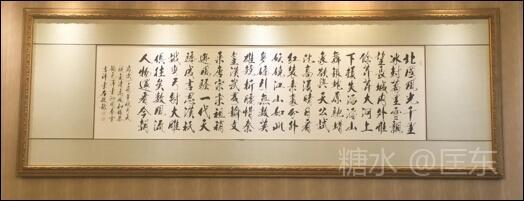 北國風光千里
冰封萬里雪飄
望長城內外惟
餘莽莽大河上
下頓失滔滔山
舞銀蛇原馳蠟
象欲與天公試
比高須晴日看
紅裝素裹分外
妖嬈江山如此
多嬌引無數英
雄競折腰惜秦
皇漢武略輸文
采唐宗宋祖稍
遜風騷一代天
驕成吉思汗祇
識彎弓射大雕
俱往矣數風流
人物還看今朝
糖水 @匡东